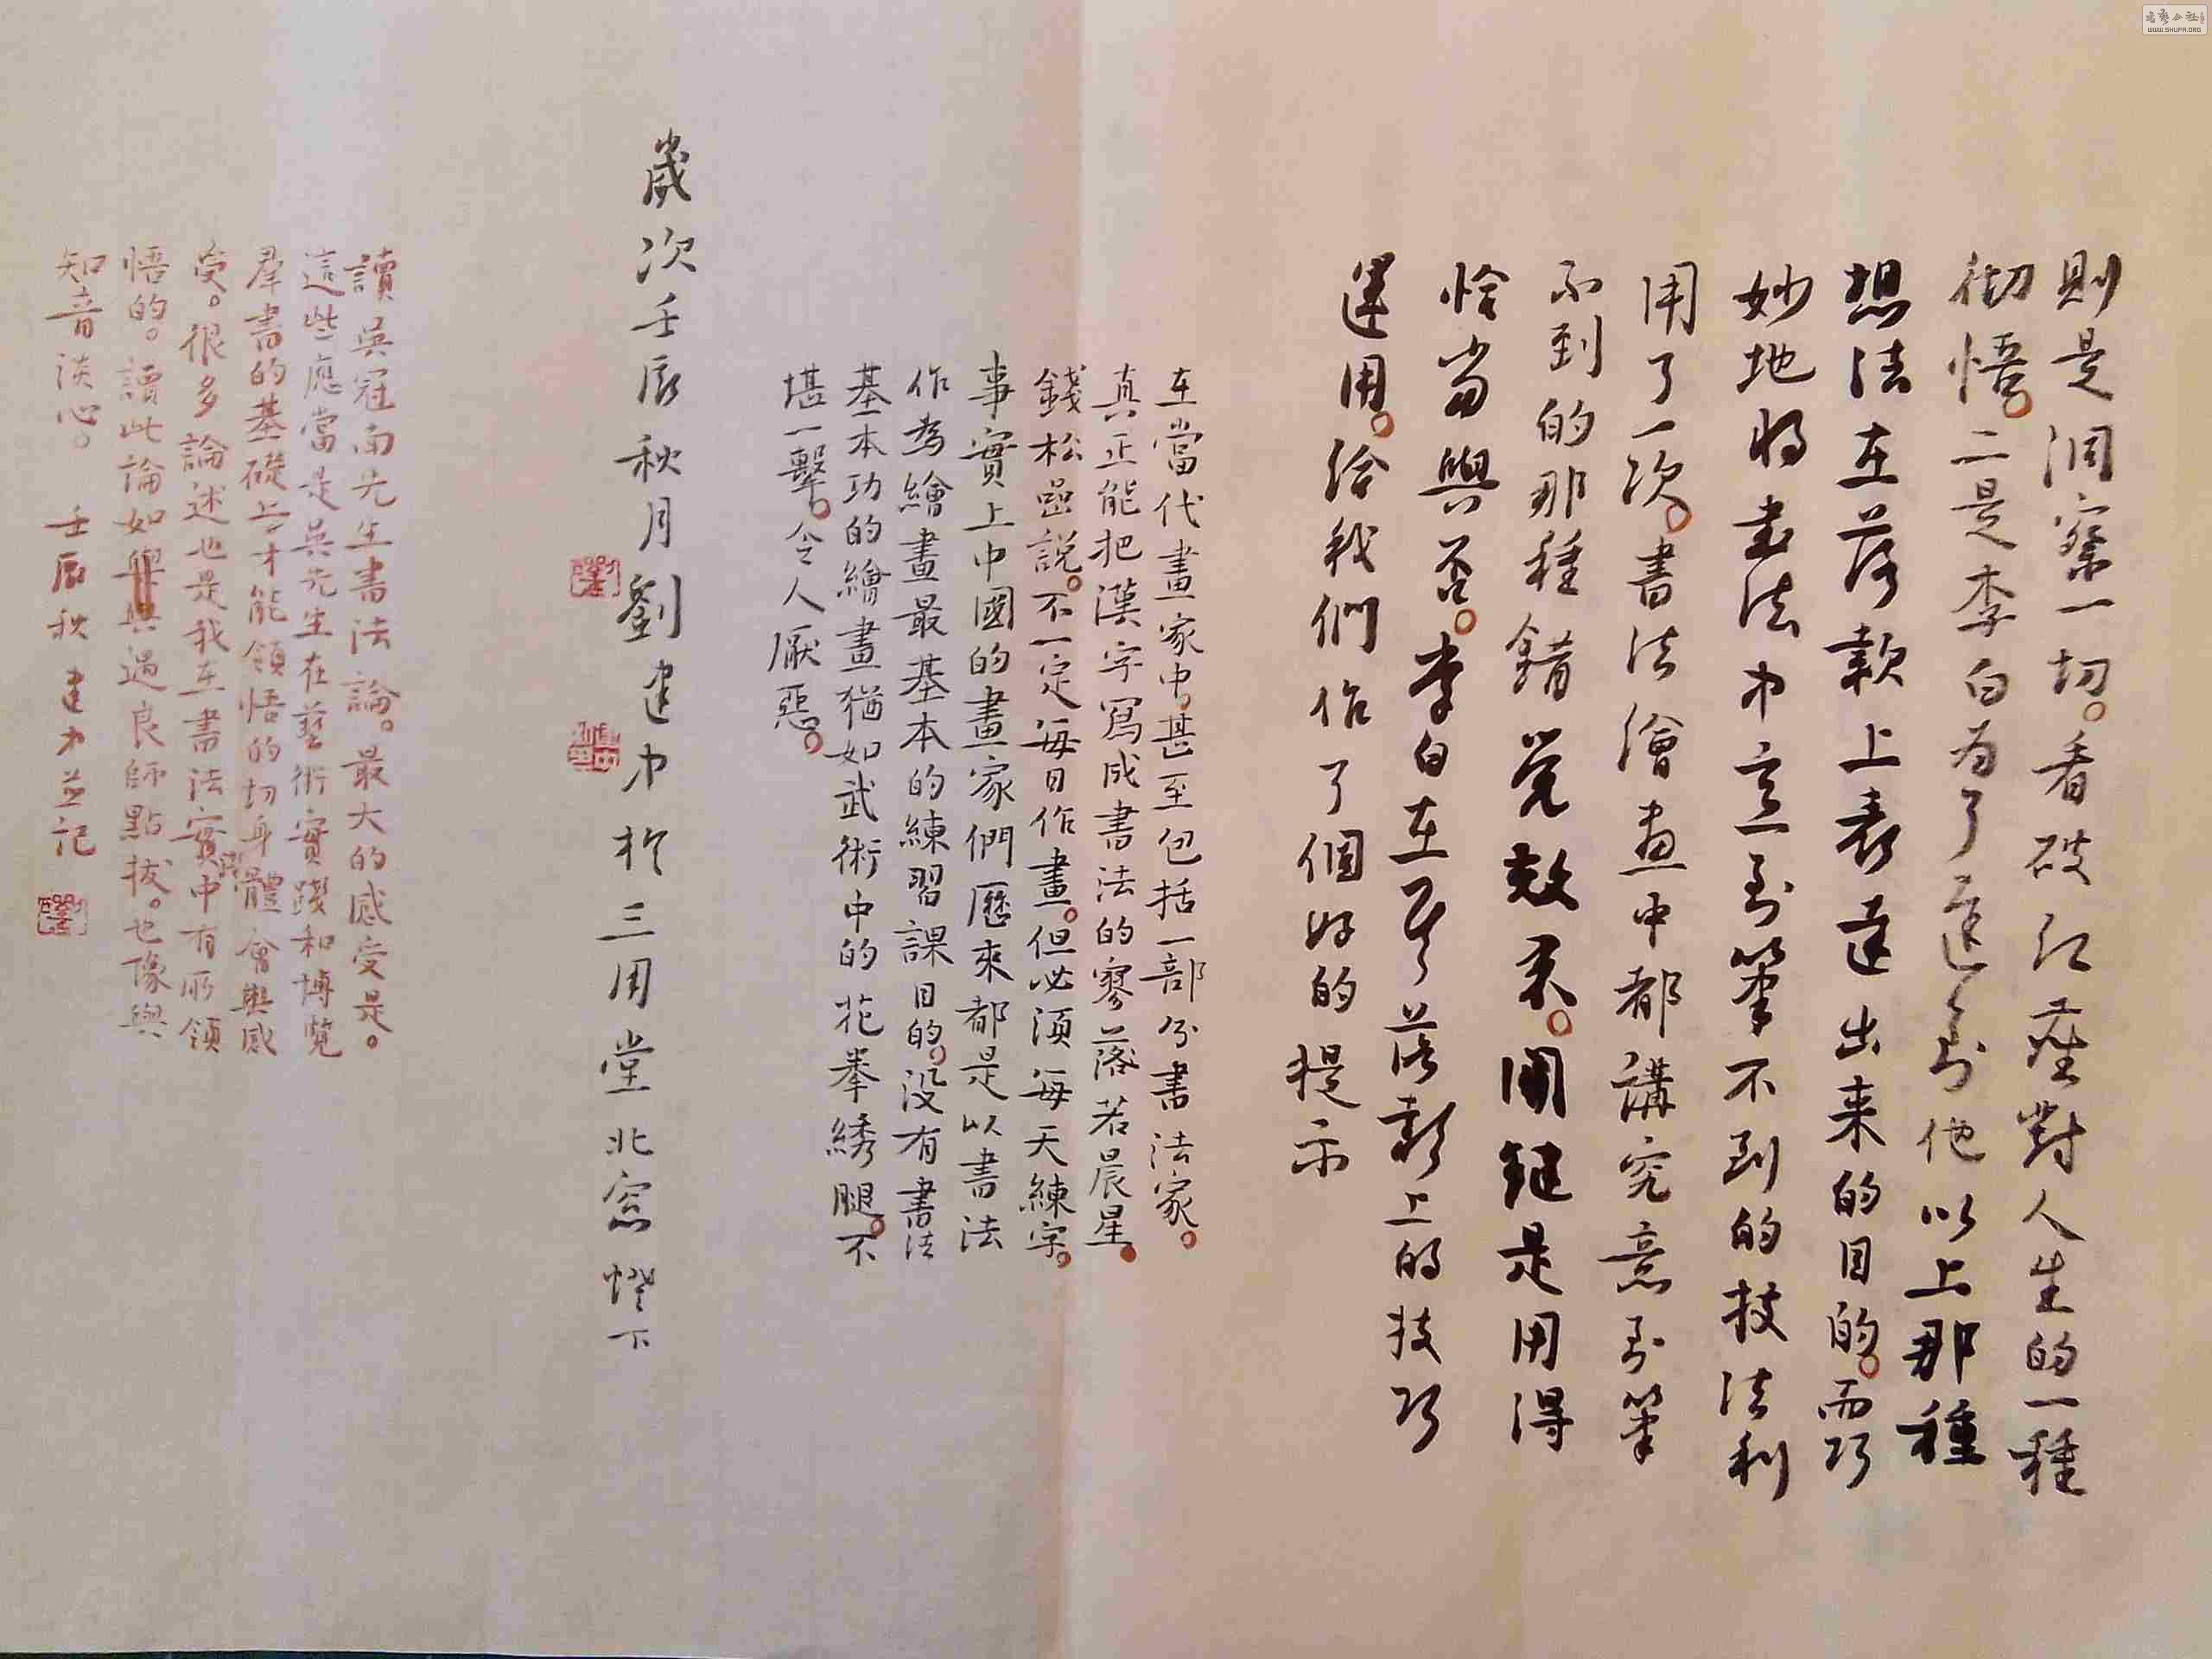 則是洞察一切。看破紅塵對人生的一種
彻悟。二是李白为了達到他以上那種
想法在落款上表達出来的目的。而巧
妙地将書法中意到筆不到的技法利
用了一次。書法繪画中都講究意到筆
不到的那種錯覚效果。関键是用得
恰當與否。李白在其落款上的技巧
運用。給我們作了個好的提示
在當代畫家中。甚至包括一部分書法家。
真正能把漢字寫成書法的寥落若晨星。
錢松喦説。不一定每日作畫。但必須每天練字。
事實上中國的畫家們歷來都是以書法
作為繪畫最基本的練習課目的。没有書法
基本功的繪畫猶如武術中的花拳綉腿。不
堪一擊。令人厭惡。
歲次壬辰秋月劉建中於三用堂北窓燈下
讀吳冠南先生書法論。最大的感受是。
這些應當是吳先生在藝術實踐和博覽
羣書的基礎上才能領悟的切身體會與感
受。很多論述也是我在書法實踐中有所領
悟的。讀此論如與遇良師點拔。也像與
知音談心。 壬辰秋建中並記
WWW.SHUFA.ORG